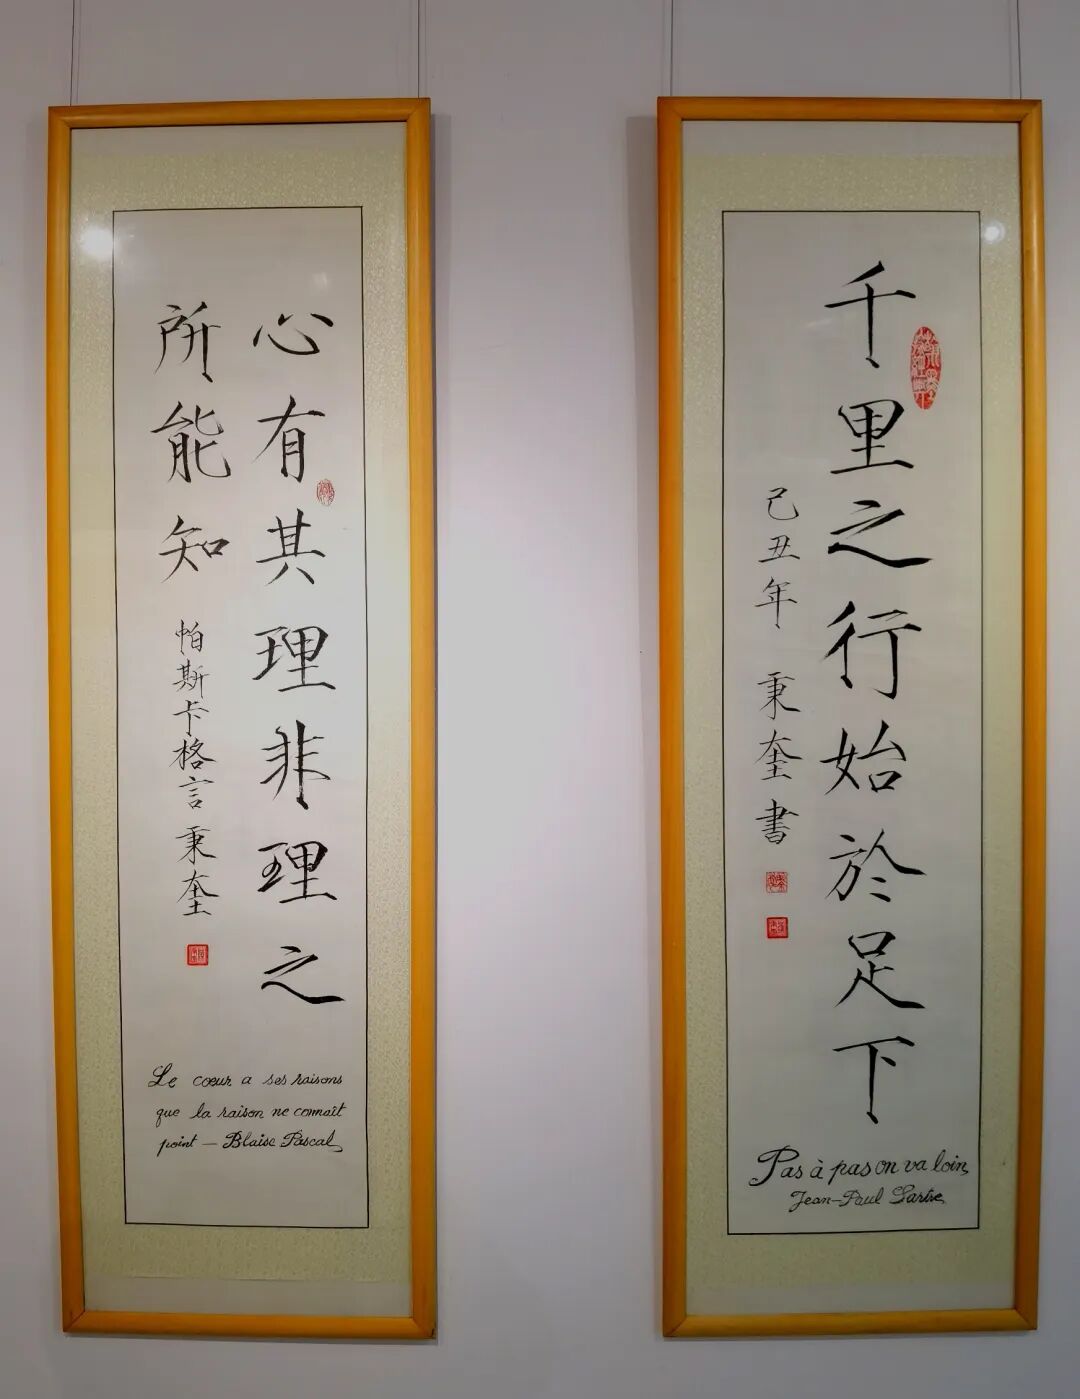 心有其理非理之
所能知
帕斯卡格言 秉奎
Le cœur a ses raisons
que la raison ne connaît
point — Blaise Pascal
千里之行始於足下
己丑年 秉奎書
Pas à pas on va loin
Jean-Paul Sartre